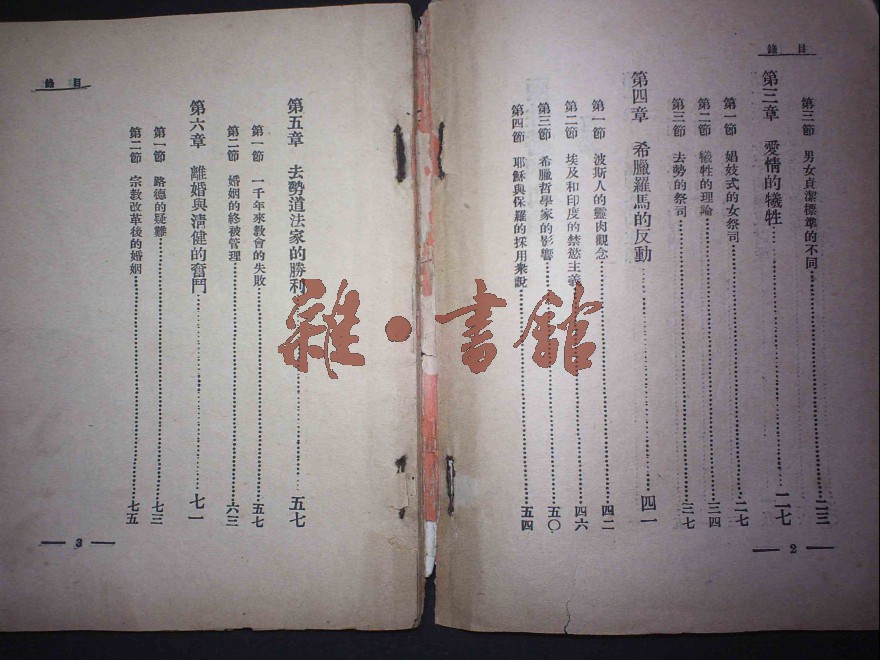 目錄
第三節 男女貞潔標準的不同……二三
第三章 愛情的犧牲……二七
第一節 娼妓式的女祭司……二七
第二節 犧牲的理論……三四
第三節 去勢的祭司……三七
第四章 希臘羅馬的反動……四一
第一節 波斯人的靈肉觀念……四二
第二節 埃及和印度的禁慾主義……四六
第三節 希臘哲學家的影響……五〇
第四節 耶穌與保羅的採用衆說……五四
2
目錄
第五章 去勢道法家的勝利……五七
第一節 一千年來敎會的失敗……五七
第二節 婚姻的終被管理……六三
第六章 離婚與淸健的奮鬥……七一
第一節 路德的疑難……七三
第二節 宗敎改革後的婚姻……七五
3
雜·書館